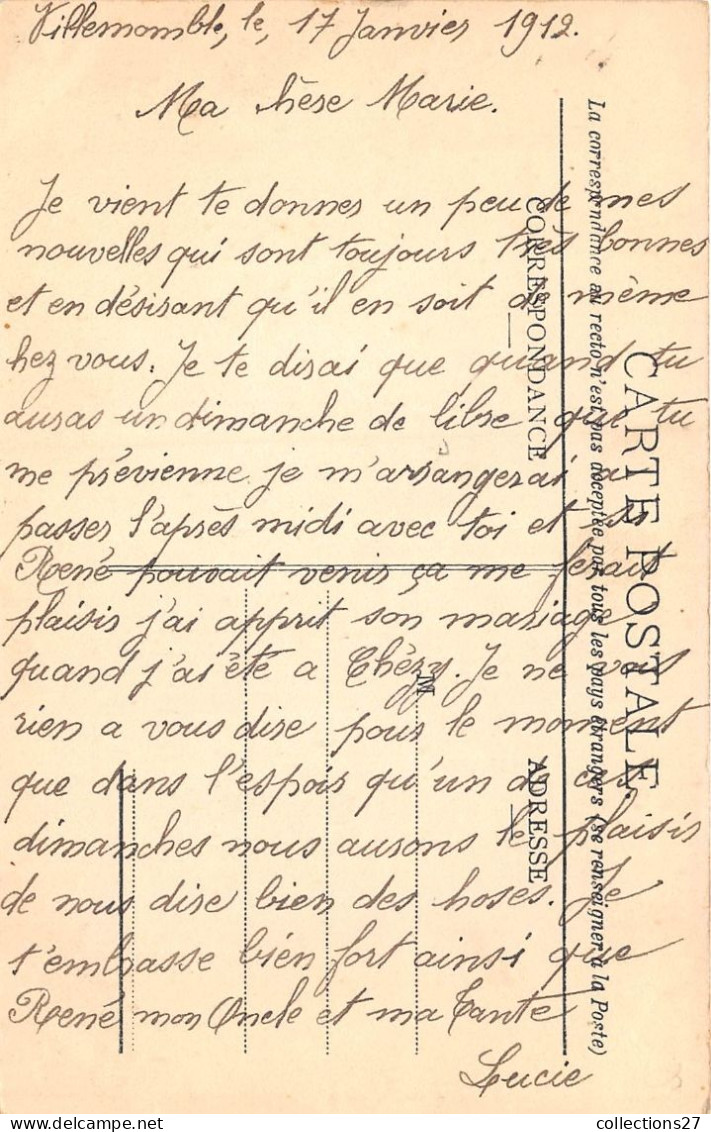 Villemomble, le, 17 Janvier 1912.
Ma hère Marie.
Je vient te donner un peu de mes
nouvelles qui sont toujours très bonnes
et en désirant qu'il en soit de même
hez vous. Je te dirai que quand tu
auras un dimanche de libre que tu
me prévienne je m'arrangerai a
passer l'après midi avec toi et si
René pouvait venir ça me ferait
plaisir j'ai apprit son mariage
quand j'ai été a Chézy. Je ne vois
rien a vous dire pour le moment
que dans l'espoir qu'un de ces
dimanches nous aurons le plaisir
de nous dire bien des hoses. Je
t'embrasse bien fort ainsi que
René mon Oncle et ma Tante
Lucie
CARTE POSTALE
La correspondance au recto n'est pas acceptée par tous les pays étrangers (se renseigner à la Poste)
CORRESPONDANCE
ADRESSE
M
collections27